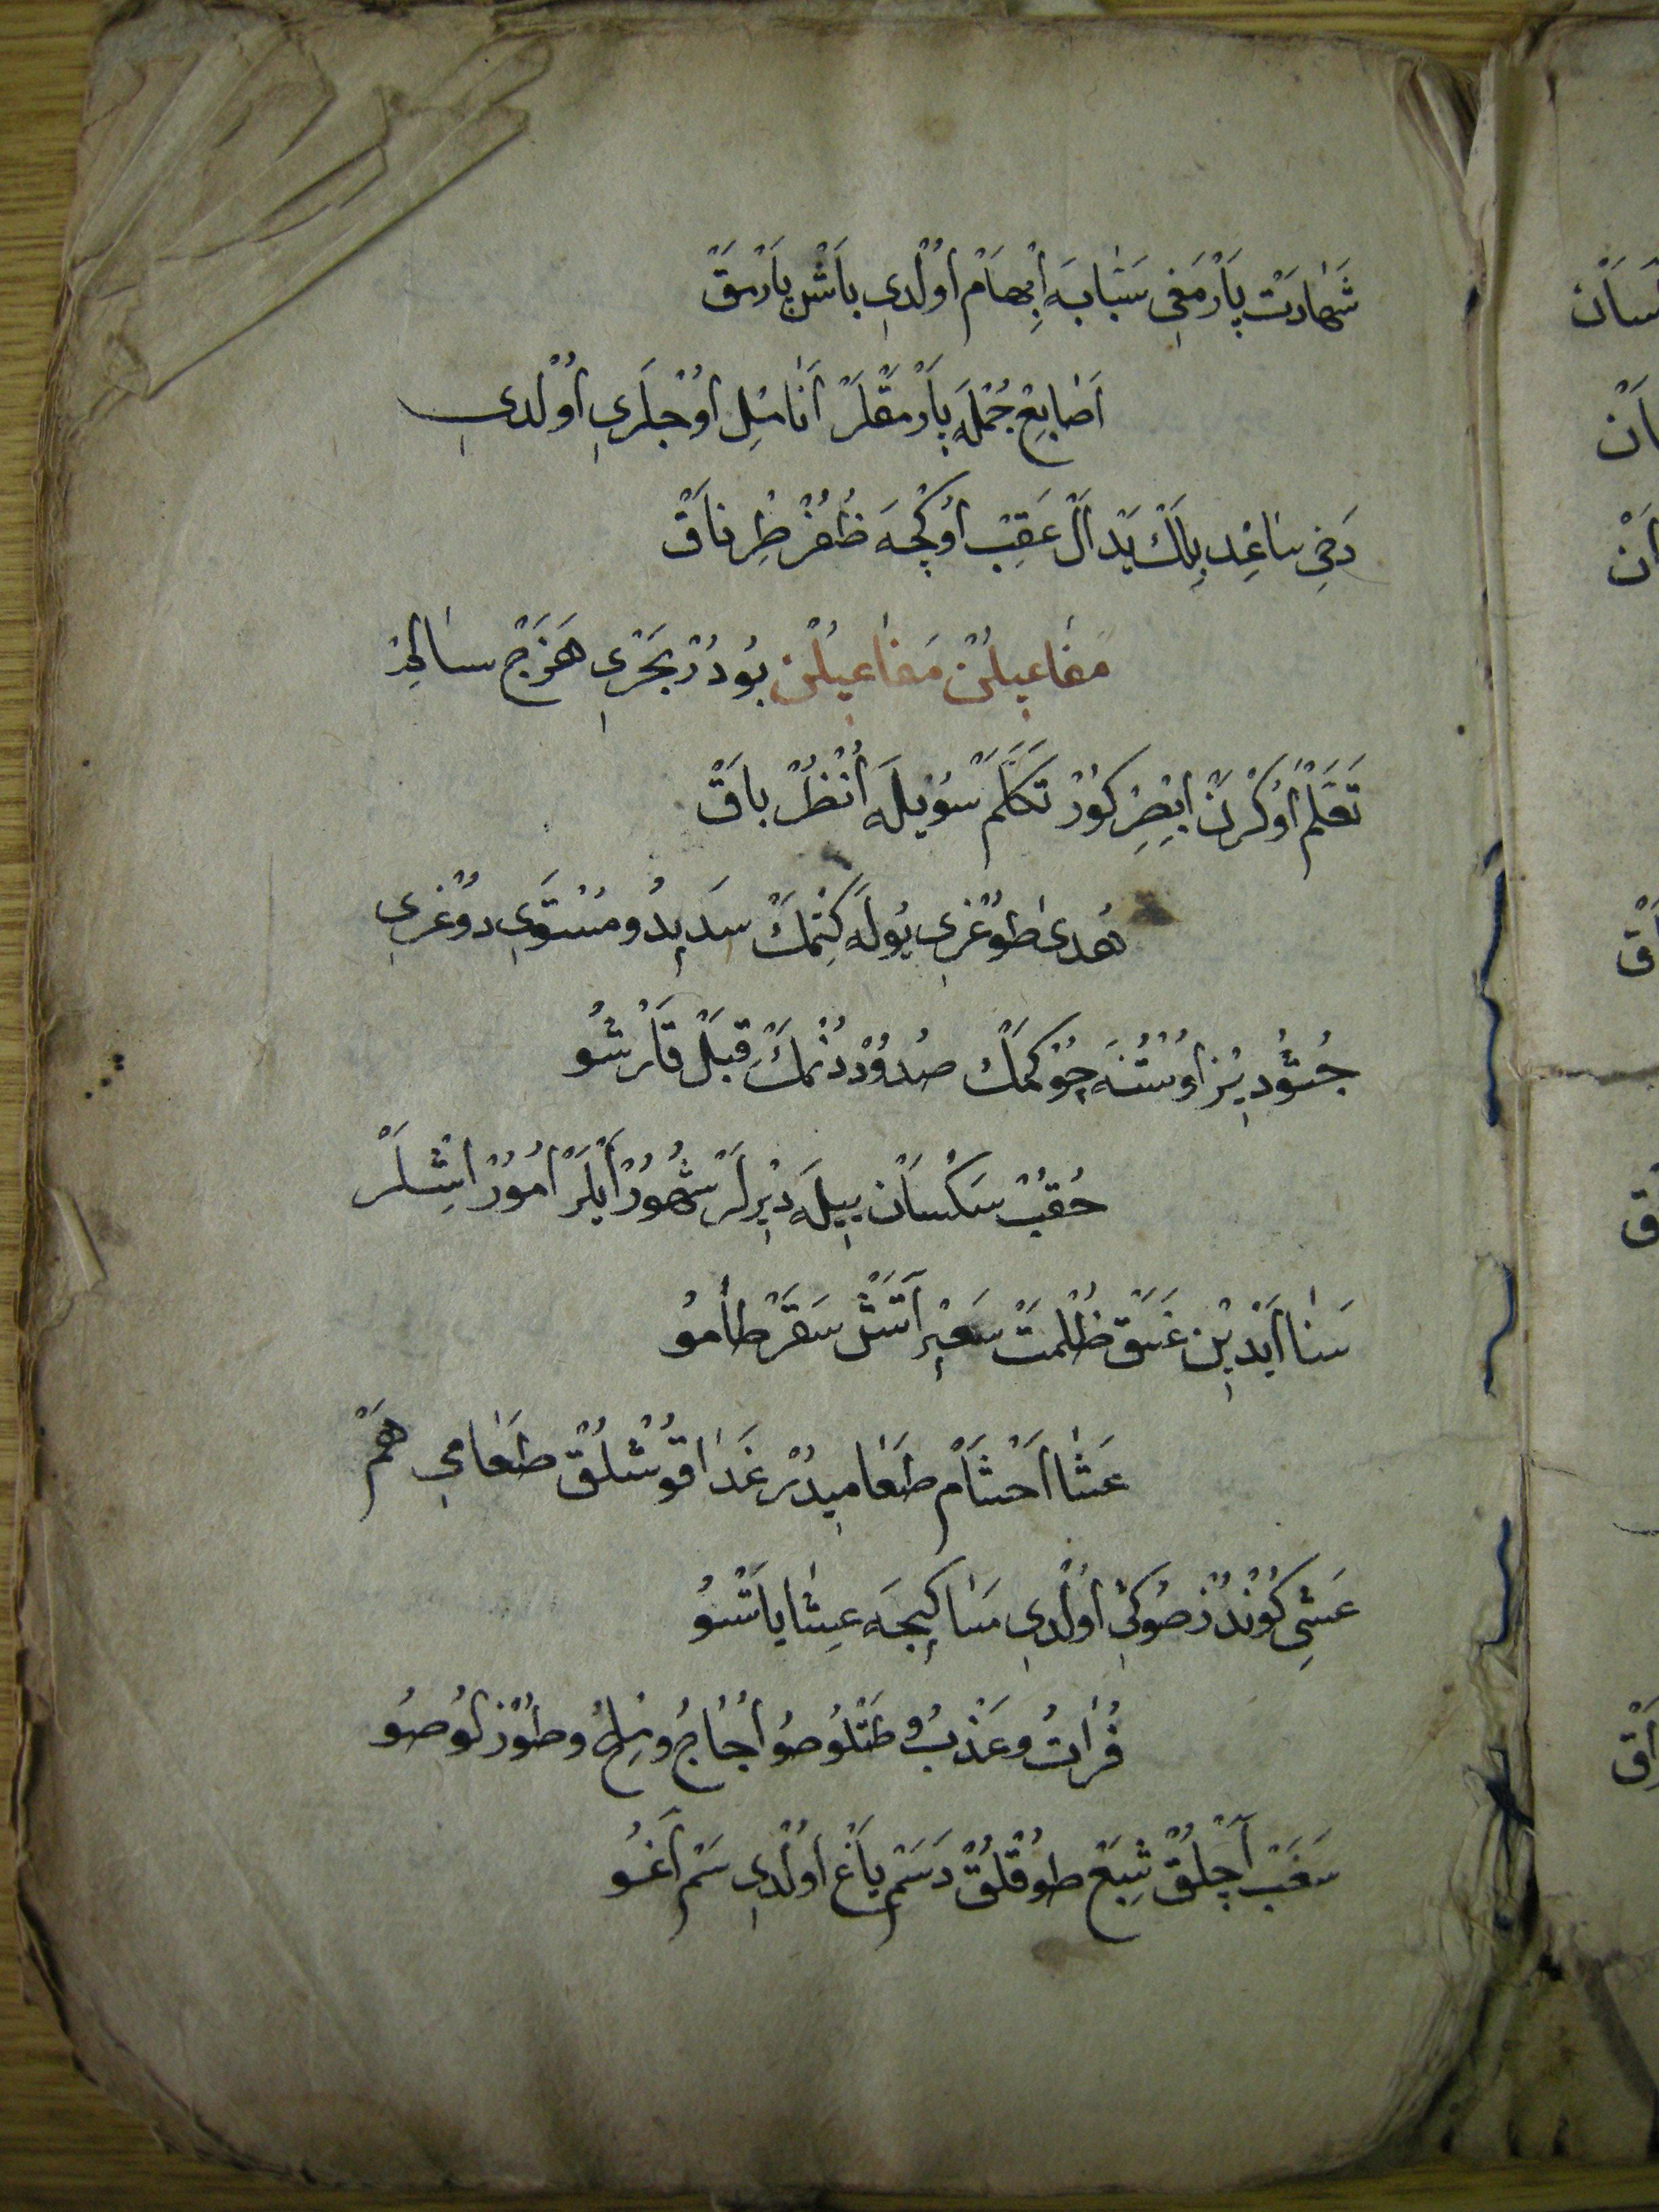 شَهَادَتْ پَارْمَغِی سَبَّابَه اِبْهَامْ اُوْلْدِی بَاشْ پَارْمَقْ
اَصَابِعْ جُمْلَه پَارْمَقْلَرْ اَنَامِلْ اُوْجْلَرِی اُوْلْدِی
دَخِی سَاعِدْ بِلَكْ یَدْ اَلْ عَقِبْ اُوكْچَه ظُفُرْ طِرْنَاقْ
مَفَاعِیلُنْ مَفَاعِیلُنْ بُودُرْ بَحْرِی هَزَجْ سَالِمْ
تَعَلَّمْ اُوكْرَنْ اَبْصِرْ كُورْ تَكَلَّمْ سُوْیلَه اُنْظُرْ بَاقْ
هُدٰی طُوغْرِی یُولَه كِتْمَكْ سَدِیدُ و مُسْتَوِی دُوغْرِی
جُثُوْدِیزْ اُوسْتُنَه چُوْكْمَكْ صُدُوْدْ دُنْمَكْ قِبَلْ قَارْشُو
حُقُبْ سَكْسَانْ بِیلَه دِیرْلَرْ شُهُورْ اَیْلَرْ اُمُورْ اِشْلَرْ
سَنَا اَیْدِینْ غَسَقْ ظُلْمَتْ سَعِیرْ آتَشْ سَقَرْ طَامُو
عَشَا اَخْشَامْ طَعَامِیدُرْ غَدَا قُوشْلُقْ طَعَامِی هَمْ
عَشِی كُونْدُزْ صُوكِی اُوْلْدِی مَسَا كِیجَه عِشَا یَاتْسُو
فُرَاتُ و عَذْبُ و طَتْلُو صُو اُجَاجُ و مِلْحُ و طُوزْلُو صُو
سَغَبْ آچْلُقْ شِبَعْ طُوقْلُقْ دَسَمْ یَاغْ اُوْلْدِی سَمْ آغُو